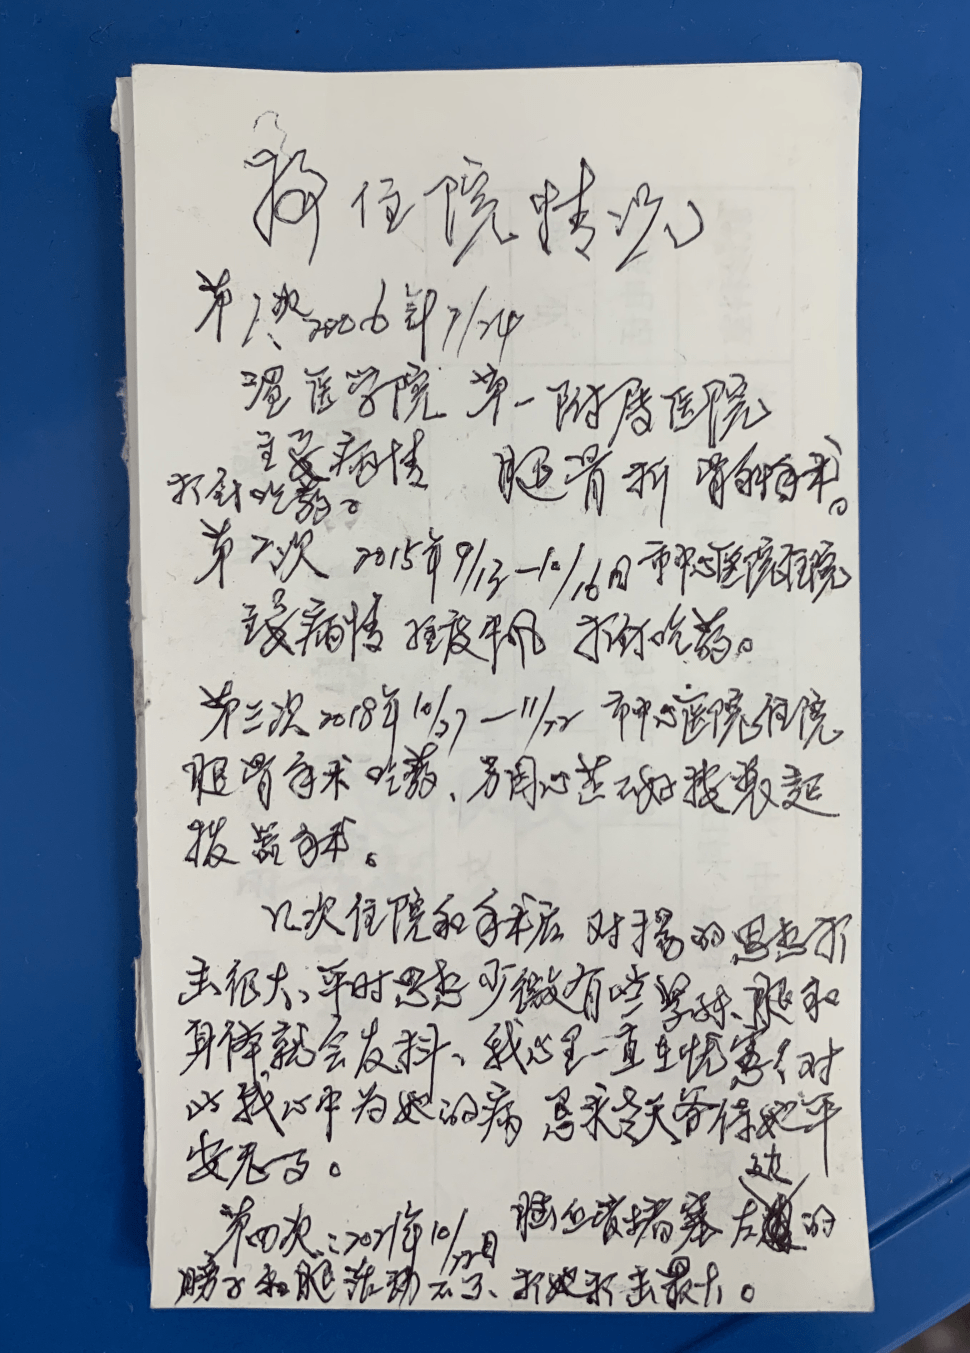 住院情况
第1次2006年7/24
医学院 第一附属医院
主要病情 腿骨折 骨科手术。
打针吃药。
第二次 2015年9/13—10/16日市中心医院住院
主要病情 中风 打针吃药。
第三次2018年10/27—11/22 市中心医院住院
腿骨手术吃药、另因心 不好 装起
拨器手术。
几次住院和手术后 对 的思想打
击很大、平时思想少微有些 腿和
身体就会发抖、我心里一直在忧 对
此我心中为她的病 恳求老天爷保她平
安无事。
第四次：2021年10/22日 脑血管堵塞 左边的
膀子和腿活动不了、打她打击最大。